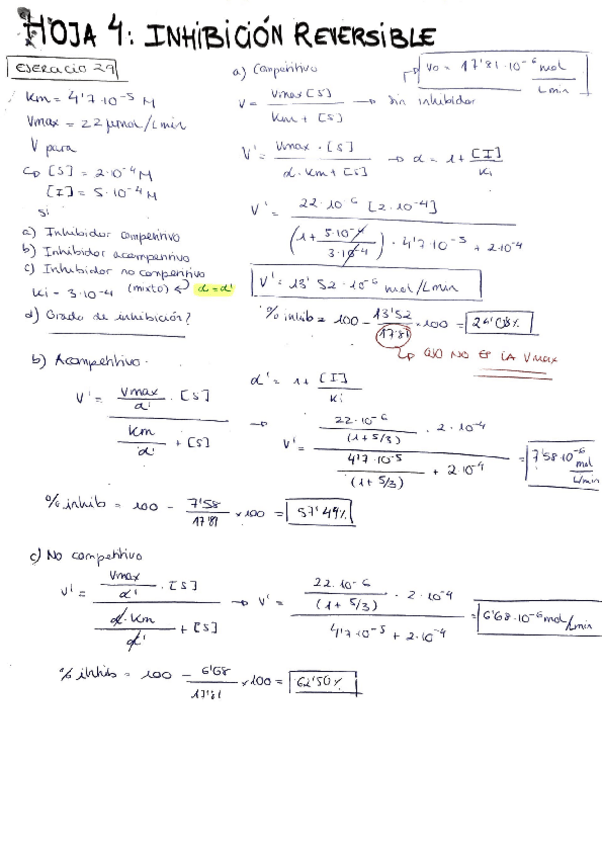 HOJA 4: INHIBICIÓN REVERSIBLE
EJERCICIO 29
Km = 4'7·10⁻⁵ M
Vmax = 22 μmol/L min
V para
[S] = 2·10⁻⁴ M
[I] = 5·10⁻⁴ M
si
a) Inhibidor competitivo
b) Inhibidor acompetitivo
c) Inhibidor no competitivo
Ki = 3·10⁻⁴ (mixto) α = α'
d) Grado de inhibición?
a) Competitivo
V₀ = 17'81·10⁻⁶ mol / L min
V = Vmax [S] / Km + [S] → sin inhibidor
V' = Vmax · [S] / α·Km + [S] → α = 1 + [I] / Ki
V' = 22·10⁻⁶ [2·10⁻⁴] / (1 + 5·10⁻⁴ / 3·10⁻⁴) · 4'7·10⁻⁵ + 2·10⁻⁴
V' = 13'52·10⁻⁶ mol/L min
% inhib = 100 - 13'52 / 17'81 × 100 = 24'08%
OJO NO ES LA Vmax
b) Acompetitivo.
α' = 1 + [I] / Ki
V' = Vmax / α' · [S] / Km / α' + [S] → V' = 22·10⁻⁶ / (1 + 5/3) · 2·10⁻⁴ / 4'7·10⁻⁵ / (1 + 5/3) + 2·10⁻⁴ = 7'58·10⁻⁶ mol / L min
% inhib = 100 - 7'58 / 17'81 × 100 = 57'49%
c) No competitivo
V' = Vmax / α' · [S] / α·Km / α' + [S] → V' = 22·10⁻⁶ / (1 + 5/3) · 2·10⁻⁴ / 4'7·10⁻⁵ + 2·10⁻⁴ = 6'68·10⁻⁶ mol/L min
% inhib = 100 - 6'68 / 17'81 × 100 = 62'50%